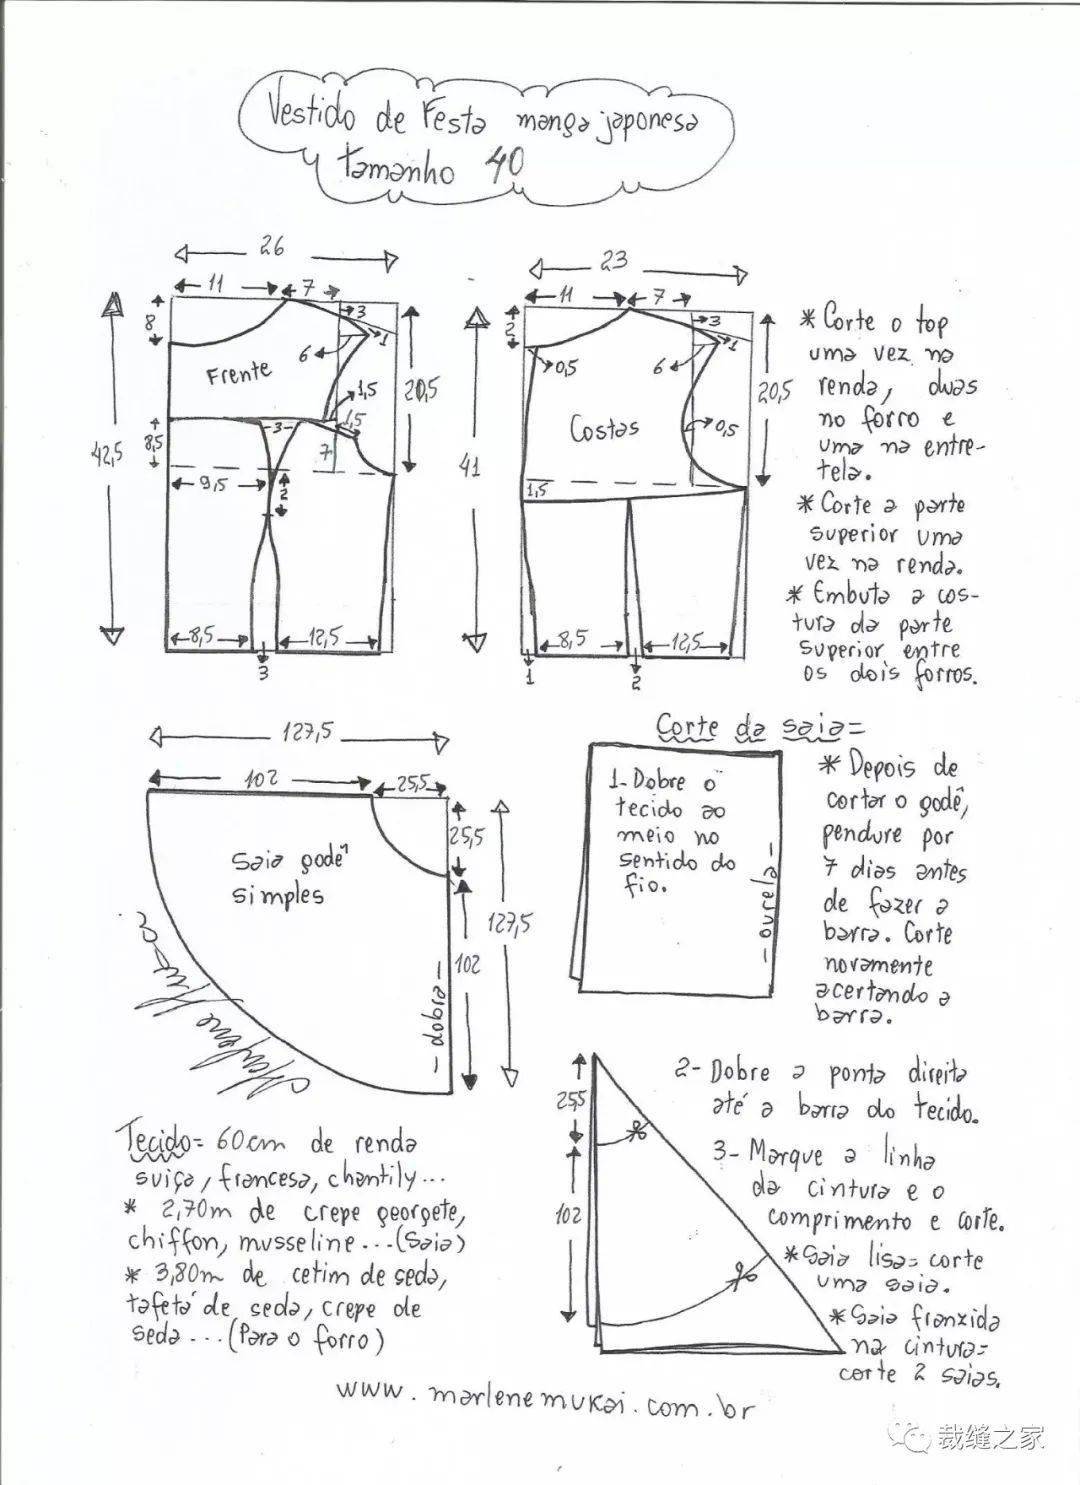 Vestido de Festa manga japonesa
tamanho 40
26
11
7
3
8
1
6
Frente
1,5
20,5
1,5
3
8,5
7
42,5
9,5
2
8,5
12,5
3
23
11
7
2
3
1
0,5
6
20,5
Costas
0,5
41
1,5
8,5
12,5
1
2
* Corte o top
uma vez na
renda, duas
no forro e
uma na entre-
tela.
* Corte a parte
superior uma
vez na renda.
* Embuta a cos-
tura da parte
superior entre
os dois forros.
127,5
102
25,5
25,5
Saia godê
simples
127,5
102
- dobra -
Marlene Mukai
Corte da saia=
1- Dobre o
tecido ao
meio no
sentido do
fio.
- ourela -
* Depois de
cortar o godê,
pendure por
7 dias antes
de fazer a
barra. Corte
novamente
acertando a
barra.
25,5
102
2- Dobre a ponta direita
até a barra do tecido.
3- Marque a linha
da cintura e o
comprimento e corte.
* Saia lisa= corte
uma saia.
* Saia franzida
na cintura=
corte 2 saias.
Tecido= 60cm de renda
suiça, francesa, chantily...
* 2,70m de crepe georgete,
chiffon, musseline...(Saia)
* 3,80m de cetim de seda,
tafetá de seda, crepe de
seda...(Para o forro)
www.marlenemukai.com.br
裁缝之家